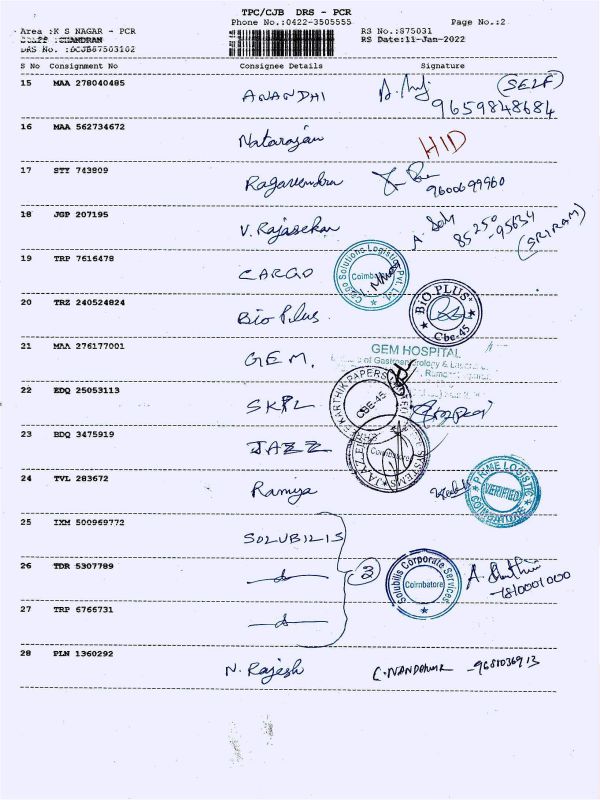 TPC/CJB DRS - PCR
Phone No.:0422-3505555 Page No.:2
Area :K S NAGAR - PCR RS No.:875031
Staff :CHANDRAN RS Date:11-Jan-2022
DRS No. :DCJB67503102
S No Consignment No Consignee Details Signature
15 MAA 278040485 ANANDHI (SELF)
9659848684
16 MAA 562734672 Natarajan HID
17 STY 743809 Ragavendra 9600699960
18 JGP 207195 V. Rajasekar 85250-95634
(SRIRAM)
19 TRP 7616478 CARGO Cargo Solutions Logistics Pvt. Ltd. Coimb
20 TRZ 240524824 Bio Plus BIO PLUS Cbe-45
21 MAA 276177001 G.E.M. GEM HOSPITAL
of Gastroenterology &
22 EDQ 25053113 SKPL KARTHIK PAPERS CBE-45
23 BDQ 3475919 JAZZ SYSTEMS Coimbatore
24 TVL 283672 Ramya PRIME LOGISTIC VERIFIED COIMBATORE
25 IXM 500969772 SOLUBILIS
26 TDR 5307789 3 Solubilis Corporate Services Coimbatore
27 TRP 6766731
28 PLN 1360292 N. Rajesh